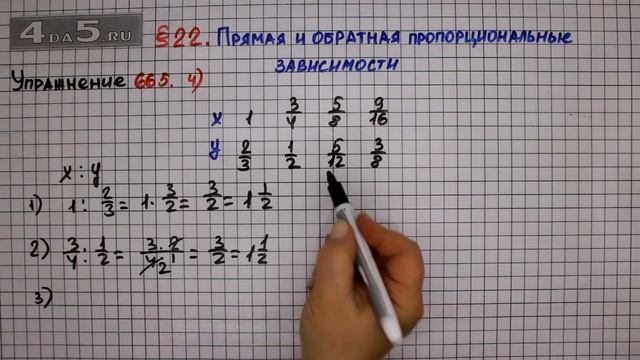 4DA5.RU §22. Прямая и обратная пропорциональные
зависимости
Упражнение 665. 4)
x 1 3/4 5/8 9/16
y 2/3 1/2 5/12 3/8
x : y
1) 1 : 2/3 = 1 · 3/2 = 3/2 = 1 1/2
2) 3/4 : 1/2 = 3 · 2 1/4 2 = 3/2 = 1 1/2
3)